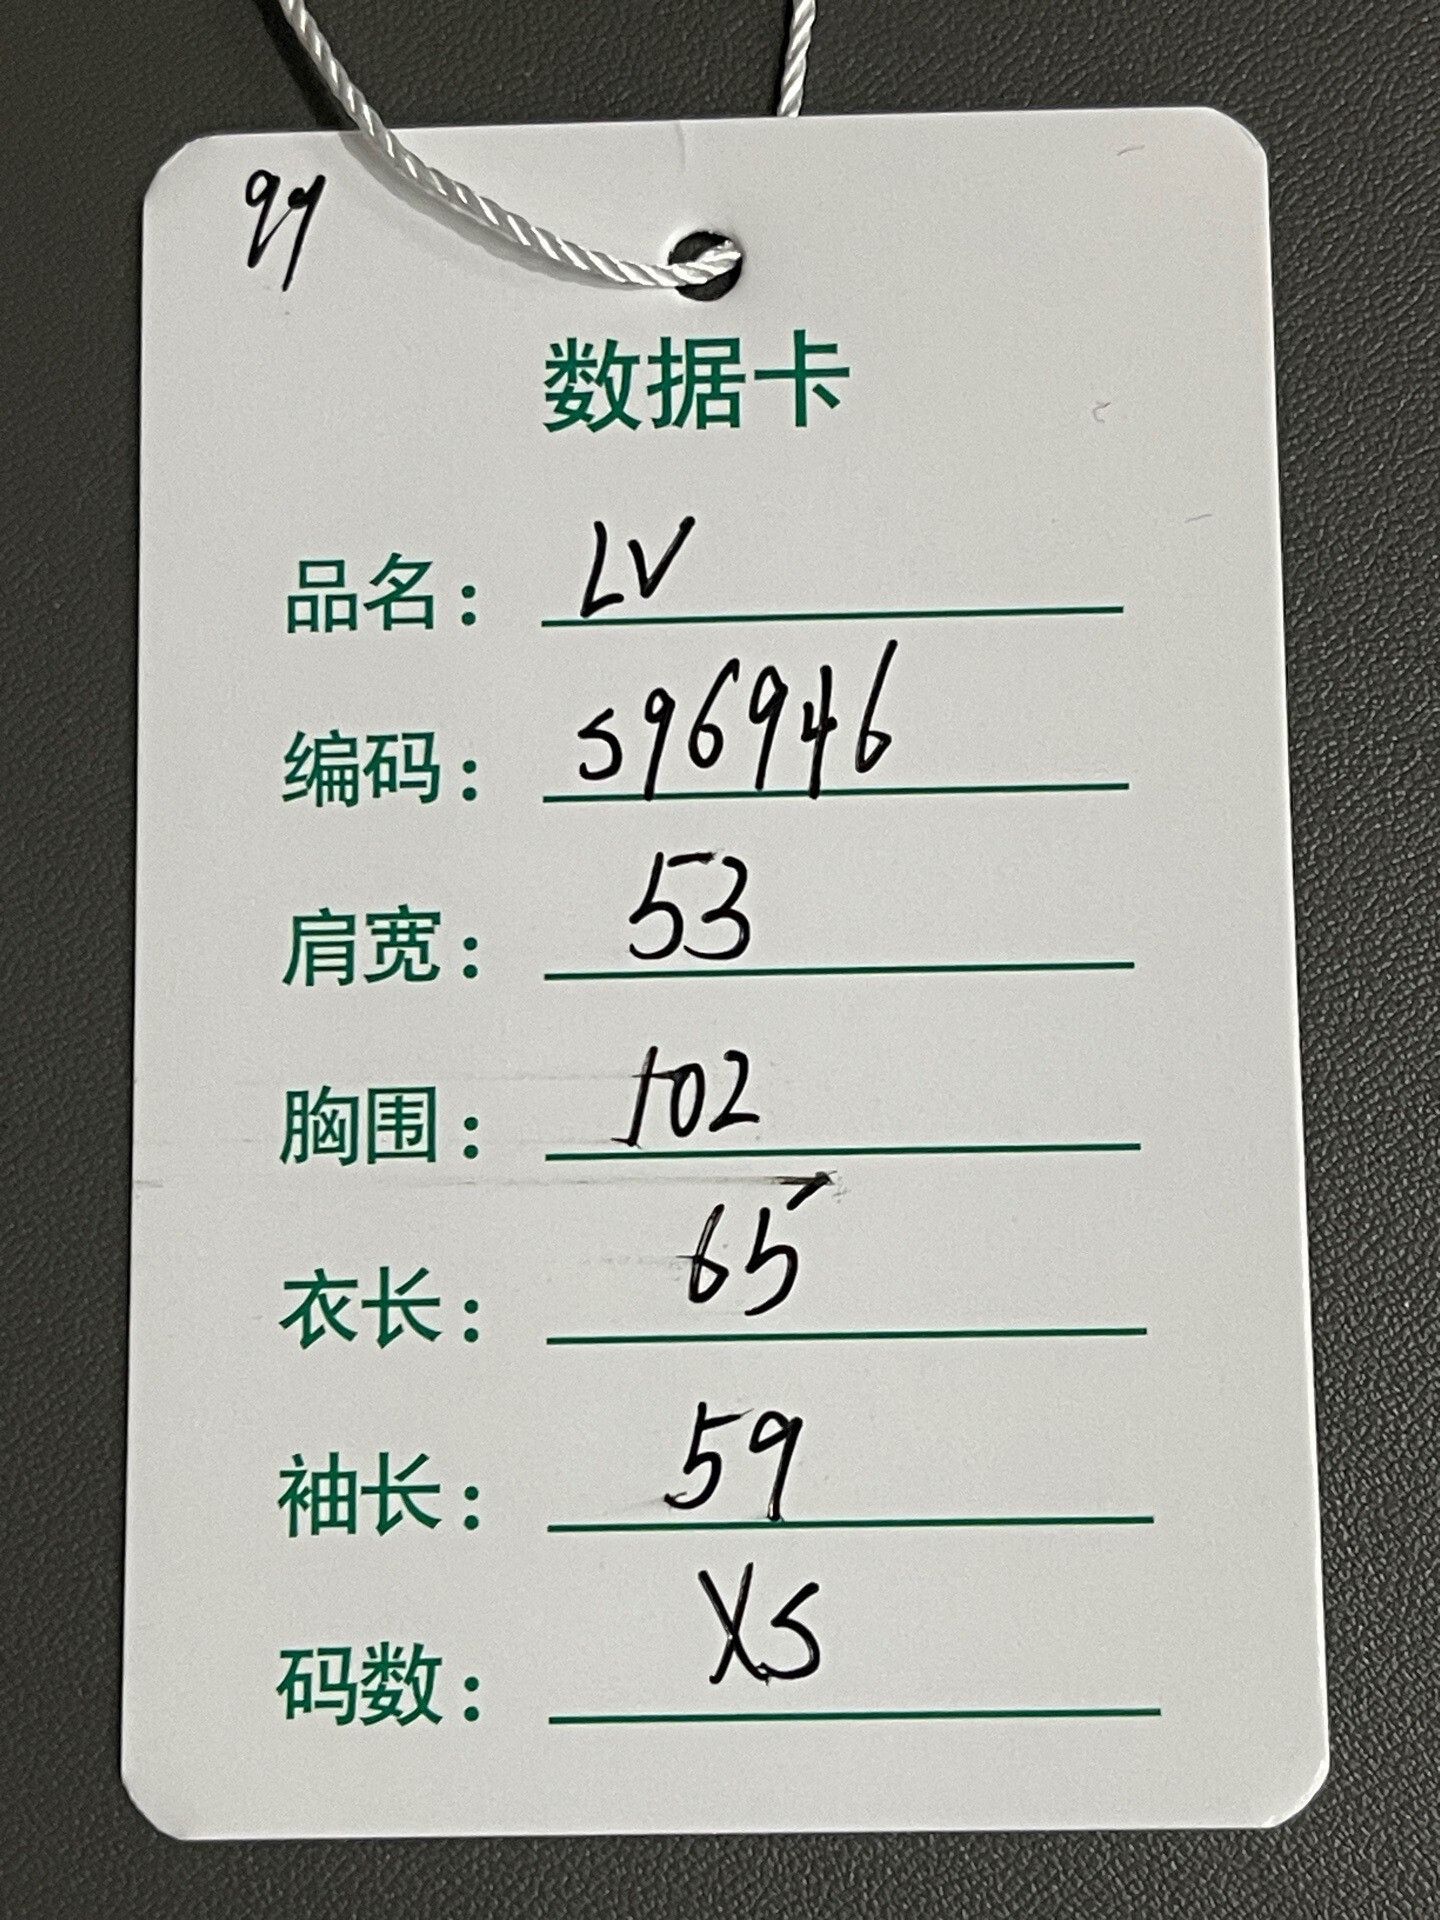 99
数据卡
品名: LV
编码: S96946
肩宽: 53
胸围: 102
衣长: 65
袖长: 59
码数: XS